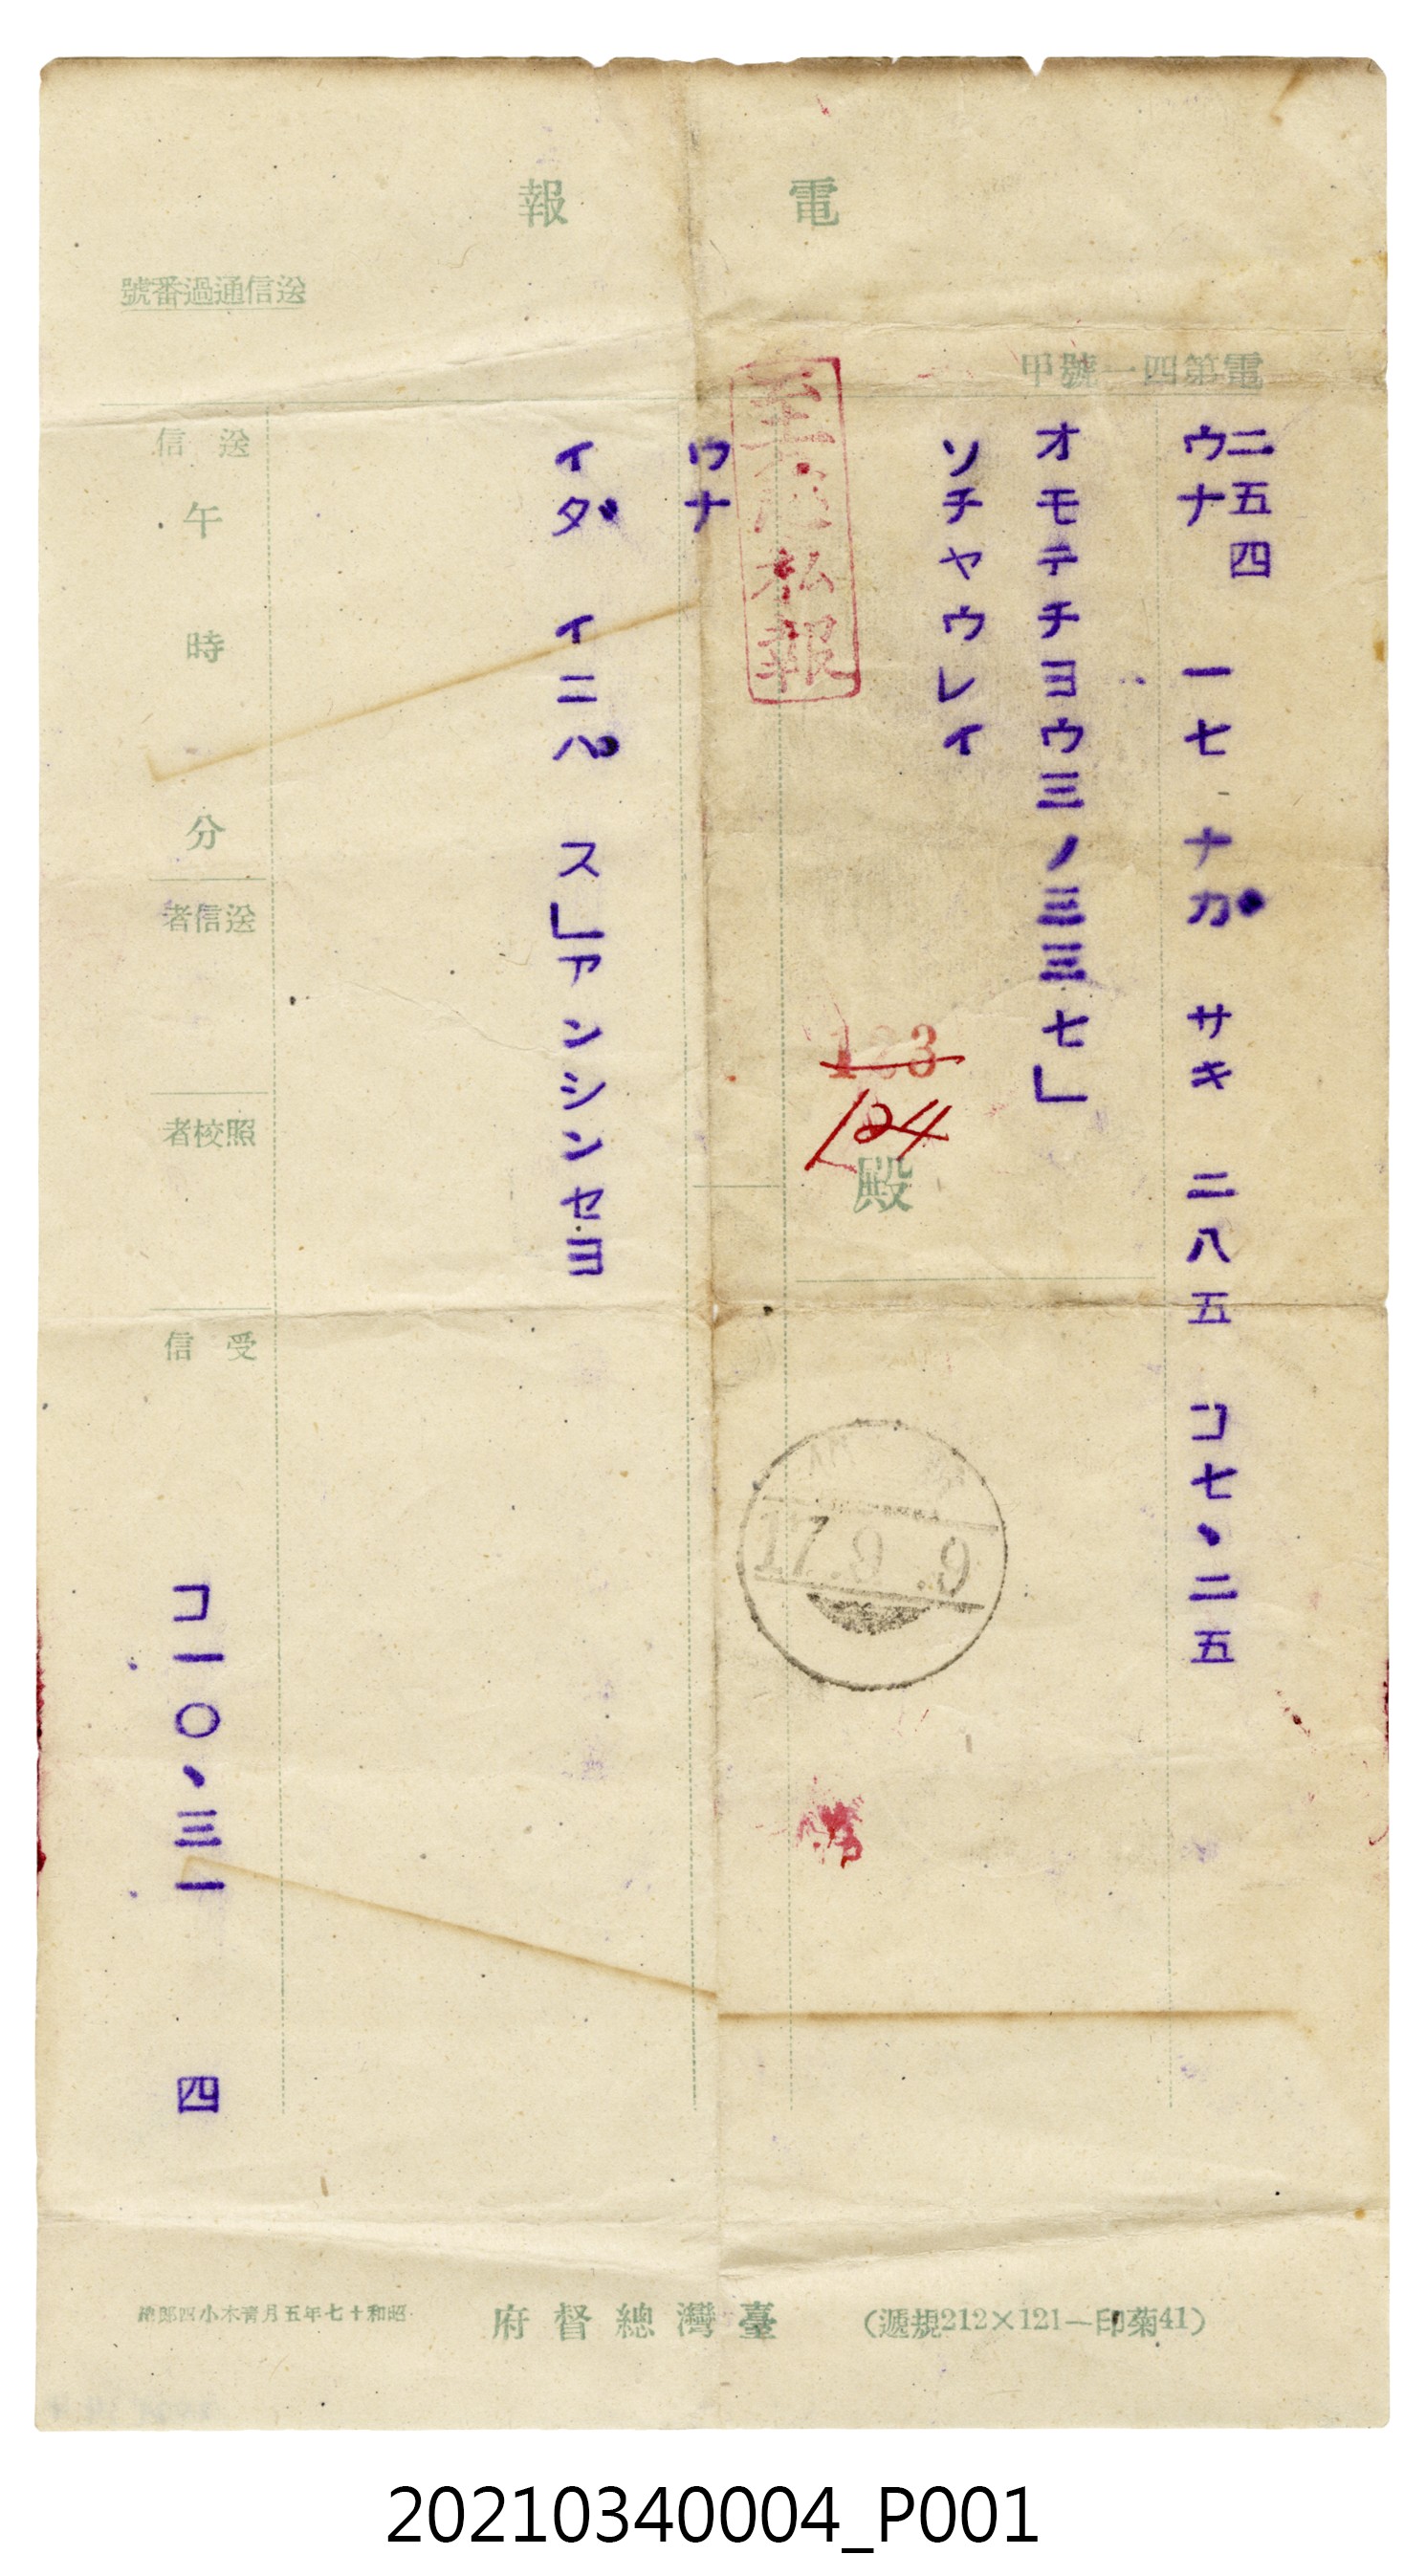 電報
送信通過番號
電第四一號甲
二五四
ウナ 一七 ナガサキ 二八五 コ七、二五
オモテチヨウ三ノ三三七」
ソチヤウレイ
123
124
殿
17.9.9
至急私報
ウナ
イダ イニパ ス」アンシンセヨ
送信
午
時
分
送信者
照校者
受信
コ一〇、三一 四
(遞規212×121—印菊41)
臺灣總督府
昭和十七年五月青木小四郎納
20210340004_P001